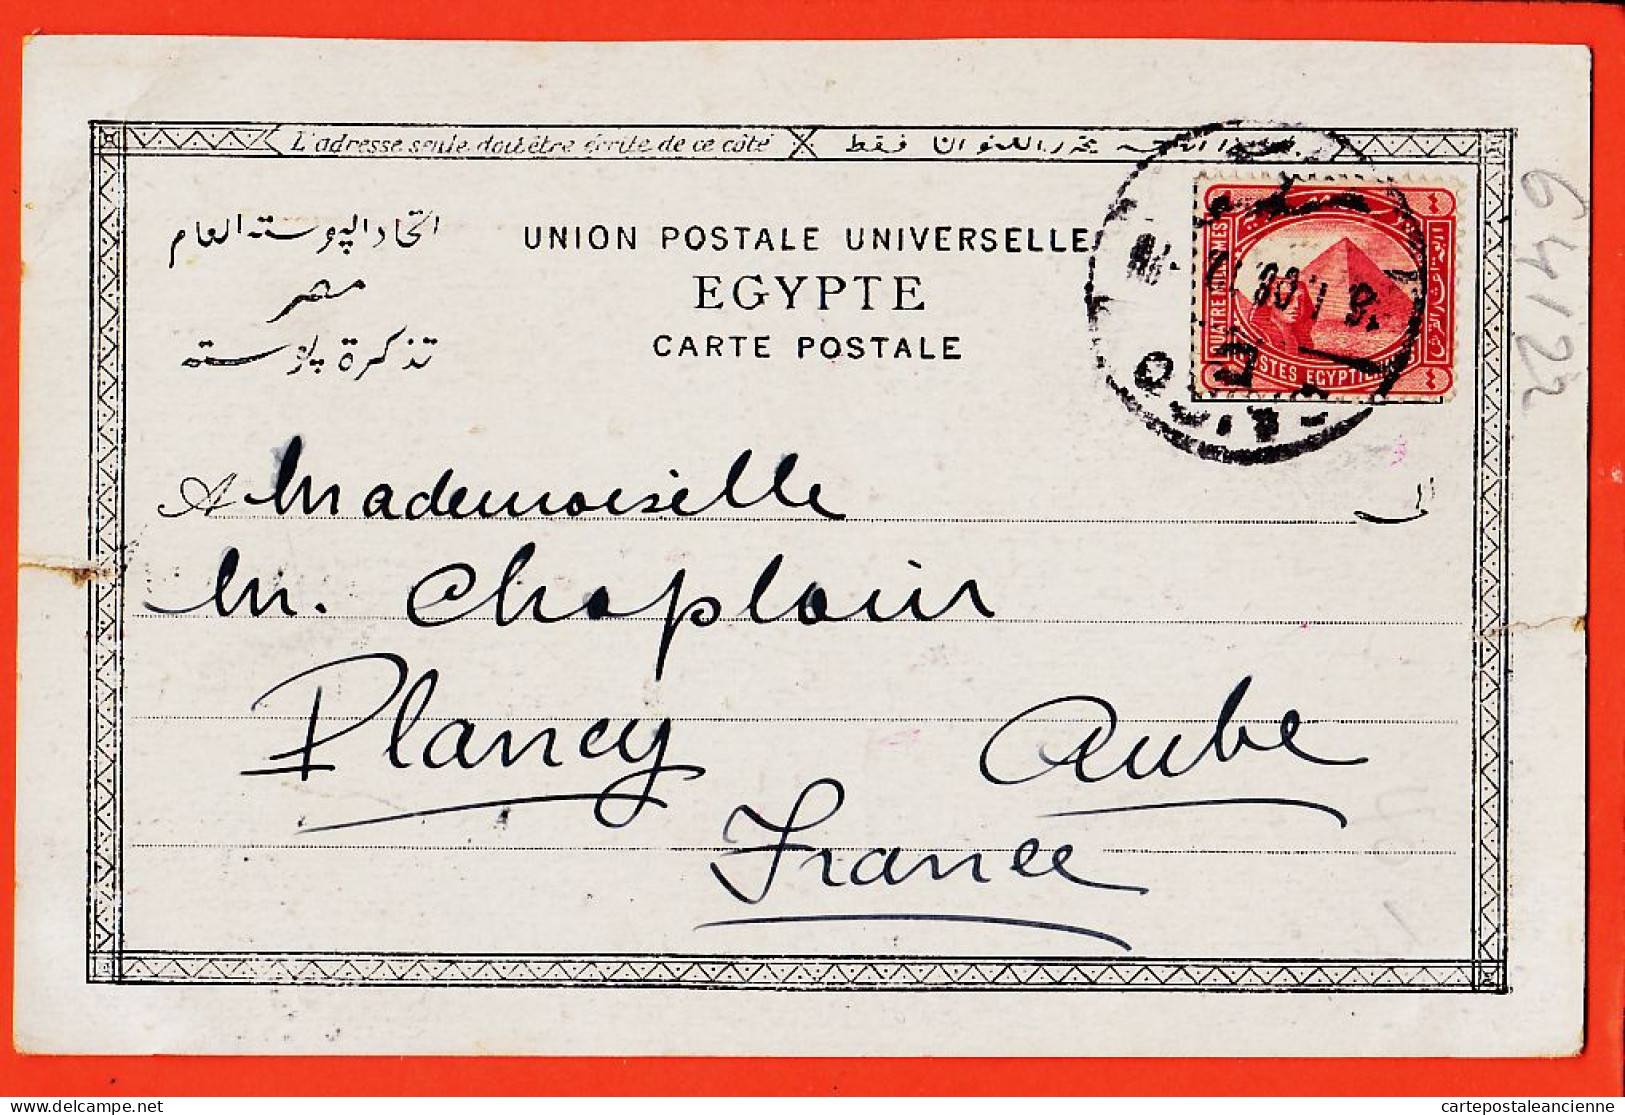 L'adresse seule doit être écrite de ce côté
فقط
اتحاد البوسته العام
مصر
تذكرة بوسته
UNION POSTALE UNIVERSELLE
EGYPTE
CARTE POSTALE
QUATRE MILLIEMES
POSTES EGYPTIENNES
CAIRO
A Mademoiselle
M. Chaplain
Plancy Aube
France
64122
cartepostaleancienne
Delcampe.net